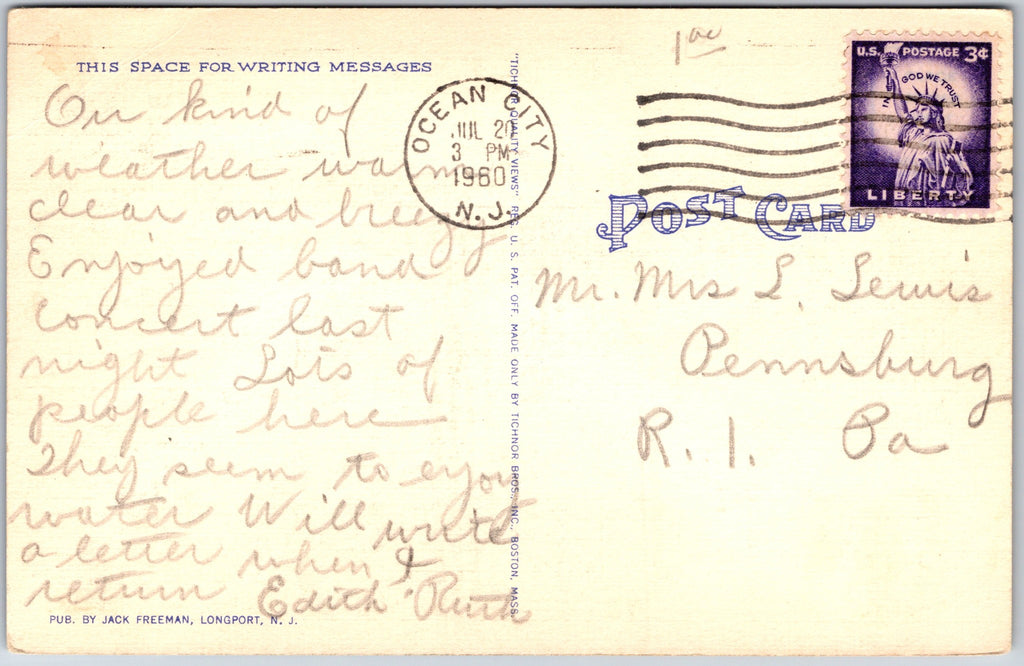 THIS SPACE FOR WRITING MESSAGES
Our kind of
weather warm
clear and breezy
Enjoyed band
concert last
night Lots of
people here
They seem to enjoy
water Will write
a letter when I
return Edith Ruth
PUB. BY JACK FREEMAN, LONGPORT, N. J.
"TICHNOR QUALITY VIEWS" REG. U. S. PAT. OFF. MADE ONLY BY TICHNOR BROS., INC., BOSTON, MASS.
OCEAN CITY
JUL 20
3 PM
1960
N. J.
U.S. POSTAGE 3¢
IN GOD WE TRUST
LIBERTY
POST CARD
Mr. Mrs L. Lewis
Pennsburg
R. 1. Pa